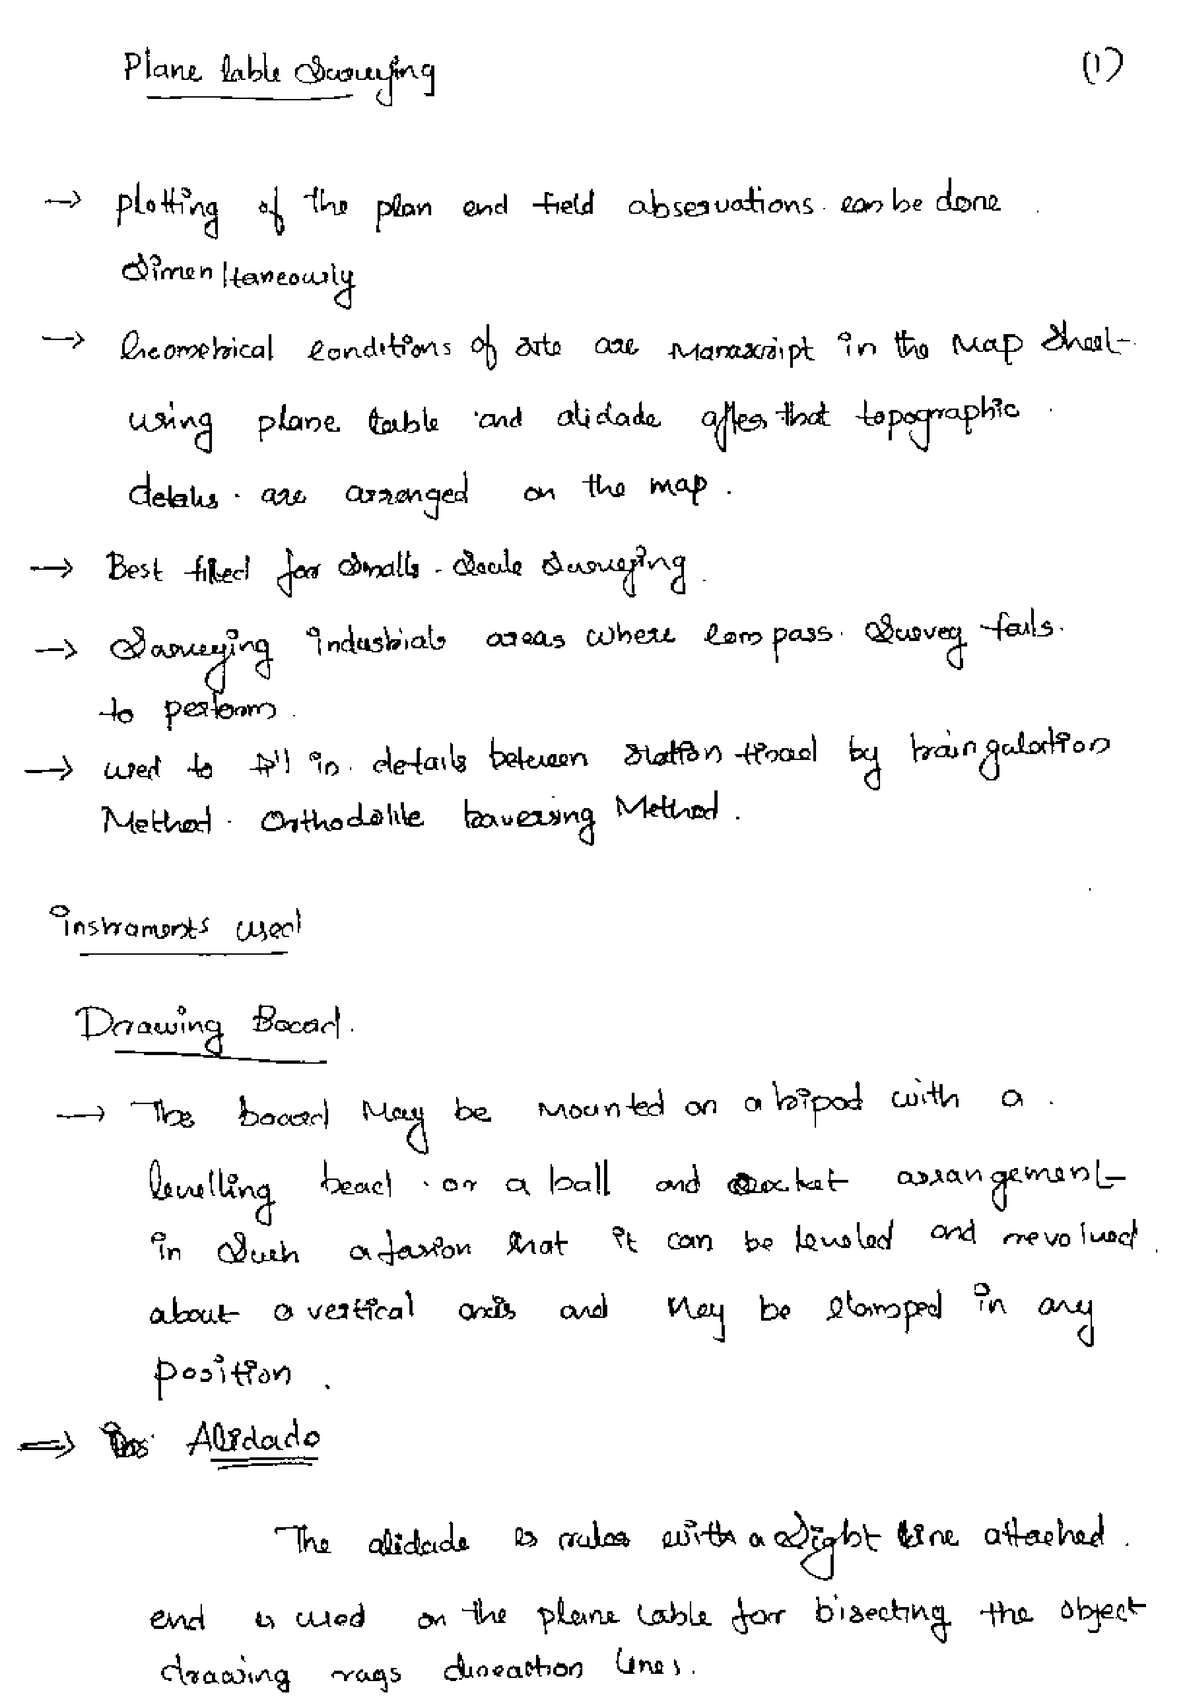 Plane table Surveying
(1)
→ plotting of the plan end field abservations. can be done.
Simenltaneously
→ Geometrical conditions of site are Manascript in the Map Sheet.
using plane table and alidade after that topographic.
details. are arranged on the map.
→ Best fitted for Smalls. Scale Surveying.
→ Surveying industrials areas where compass. Survey fails.
to perform.
→ used to fill in. details between station fixed by traingulation
Method. Orthodolite traversing Method.
instraments used
Drawing Board.
→ The board May be Mounted on a tripod with a.
levelling head. or a ball and socket arrangement
in Such a fasion that it can be leveled and revolved.
about a vertical axis and May be clamped in any
position.
⇒ Alidade
The alidade is ruler with a Sight line attached.
end is used on the plane table for bisecting the object
drawing rays lines.